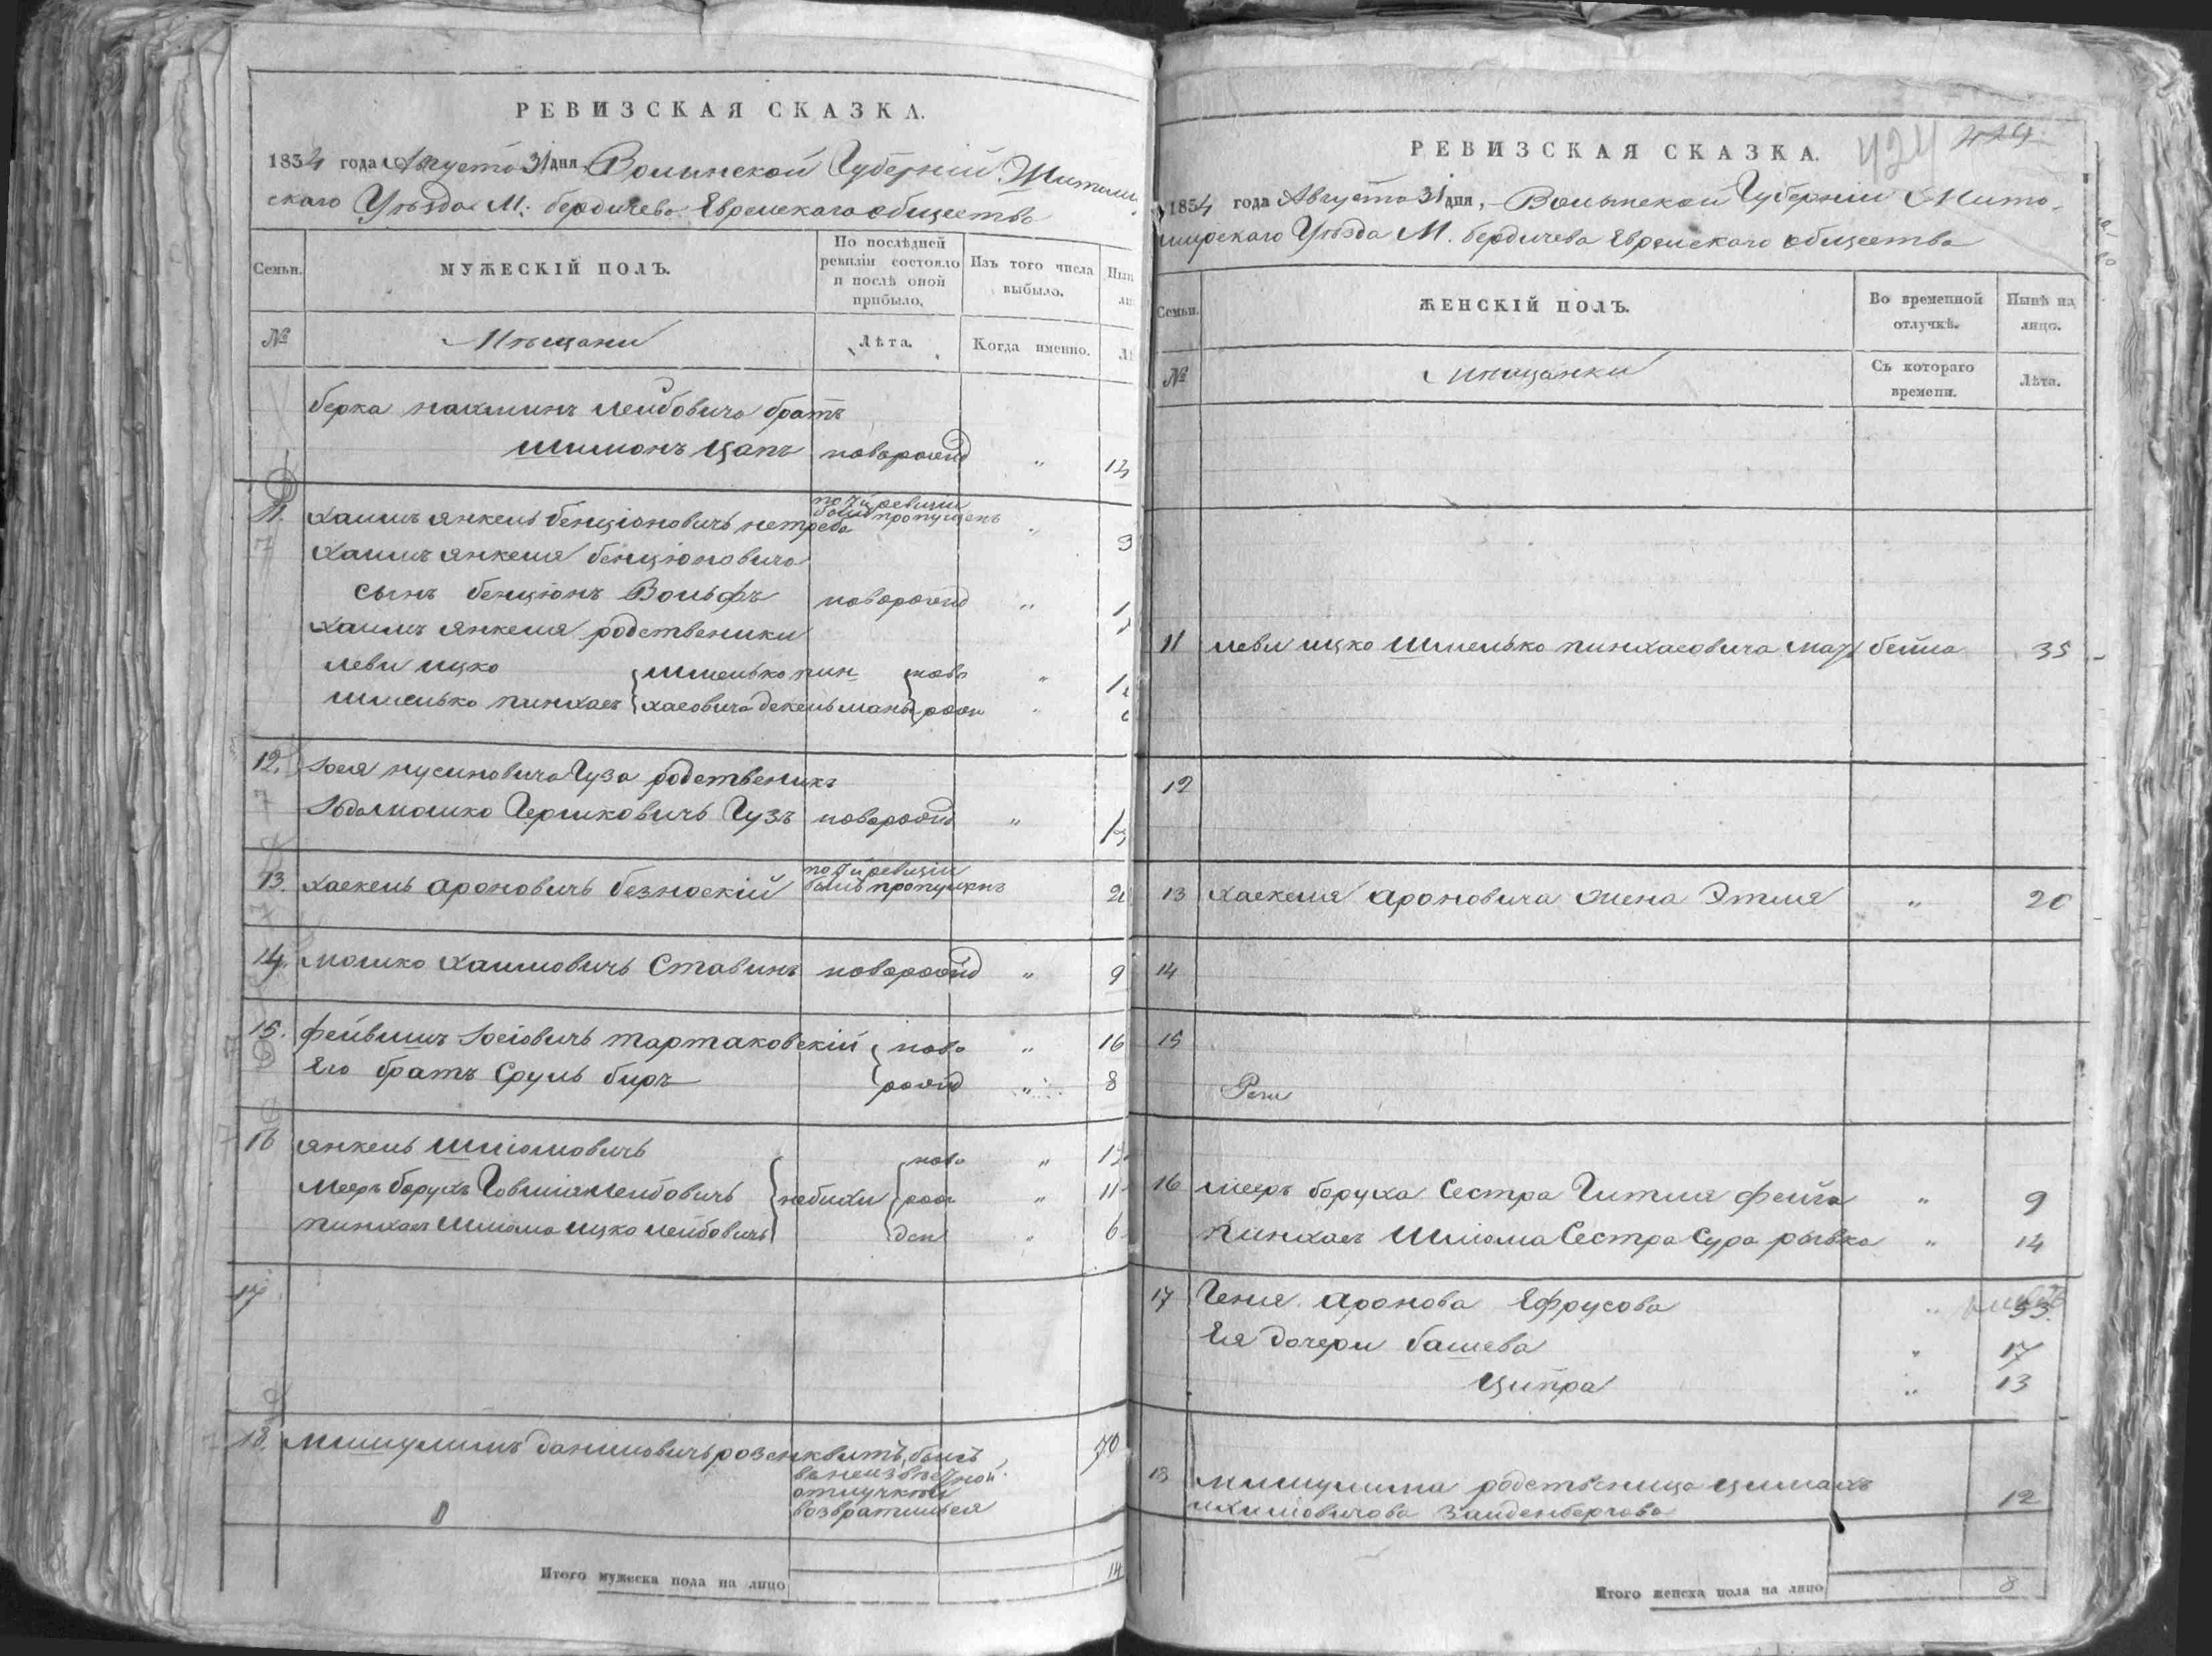 РЕВИЗСКАЯ СКАЗКА.
1854 года Августа 31 дня Волынской Губерніи Житоми
скаго Уѣзда М. бердичева Еврейскаго общества
Семьи.
МУЖЕСКІЙ ПОЛЪ.
По послѣдней ревизіи состояло и послѣ оной прибыло.
Изъ того числа выбыло.
№
Мѣщани
Лѣта.
Когда именно.
берка нахминъ лейбовича братъ
Шимонъ Цапъ новорожд "
11. Хаимъ янкель бенціоновичъ нетреба ревизіи былъ пропущенъ "
Хаимъ янкеля бенціоновича
сынъ бенціонъ Вольфъ новорожд "
Хаимъ янкеля родственики
леви ицко Шмелько пин ново "
шмелько пинхасъ хасовича декельманы рож "
12. Іося нусиновича Гуза родственикъ
Гершковичъ Гузъ новорожд "
13. Хаскель ароновичъ безноскій ревизіи былъ пропущенъ
14. Мошко Хаимовичъ Ставинъ новорожд " 9
15. Фейвишъ Іосіовичъ тартаковскій ново " 16
Его братъ Сруль беръ рожд " 8
16 янкель Шліомовичъ ново "
Мееръ борухъ Говшія лейбовичъ рож " 11
пинхасъ Шліома ицко лейбовичъ ден " 6
17
18. Мишулимъ даниловичъ розенквитъ, былъ 70
въ неизвѣстной
отлучкѣ
возвратился
Итого мужеска пола на лицо 14
424
РЕВИЗСКАЯ СКАЗКА.
1854 года Августа 31 дня, Волынской Губерніи Жито-
мирскаго Уѣзда М. бердичева Еврейскаго общества
Семьи.
ЖЕНСКІЙ ПОЛЪ.
Во временной отлучкѣ.
Нынѣ на лицо.
№
Мѣщанки
Съ котораго времени.
Лѣта.
11 леви ицко Шмелько пинхасовича мать бейла 35
12
13 Хаскеля ароновича жена Этля " 20
14
15
16 мееръ боруха Сестра Гитля фейга " 9
пинхасъ Шліома Сестра Сура рывка " 14
17 Геня аронова Ефрусова " 53
Ея дочери башева " 17
Ципра " 13
18 Мишулима родственица
Зайденбергова 12
Итого женска пола на лицо 8